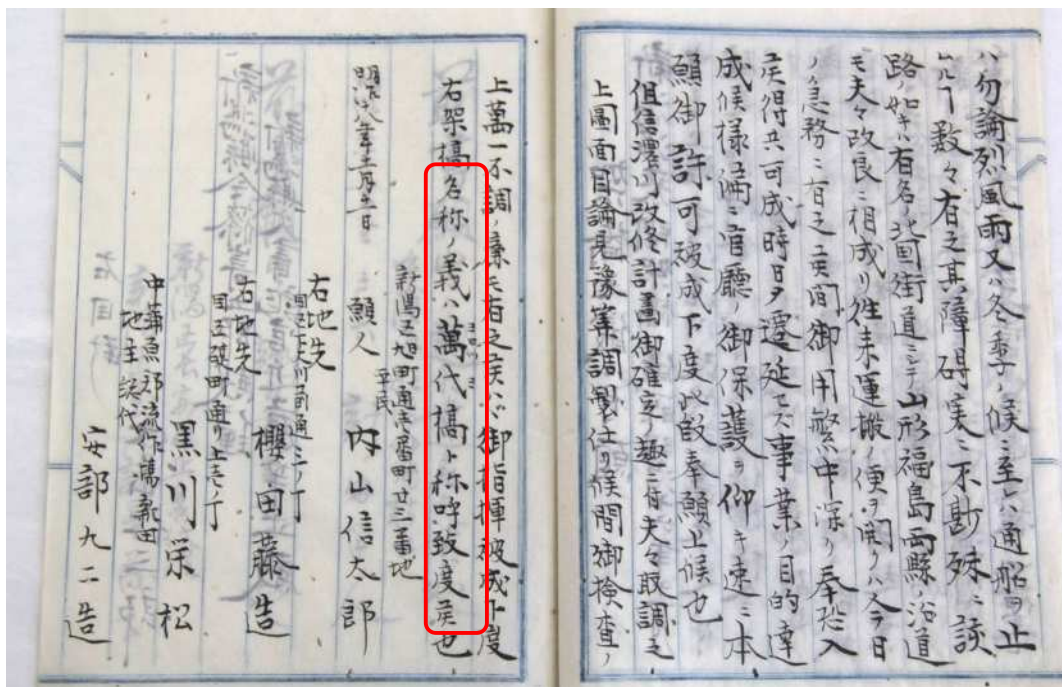 ハ勿論烈風雨又ハ冬季ノ候ニ至ハ通船ヲ止
ムル丁数々有之其障碍実ニ不尠殊ニ該
路ノ如キハ有名ノ街道ニテ山形福島両縣ノ沿道
モ夫々改良ニ相成リ往来運搬ノ便ヲ開クハ今日
ノ急務ニ有之候間御用繁中深ク奉恐入
候得共可成時日ヲ遷延セス事業ノ目的達
成候様偏ニ官廳ノ御保護ヲ仰キ速ニ本
願御許可被成下度此段奉願上候也
但信濃川改修計畫御確定ノ趣ニ付夫々取調之
上圖面目論見豫算調製仕リ候間御検査ノ
上萬一不調ノ廉モ有之候ハヾ御指揮被成下度
右架橋名称ノ義ハ萬代橋ト称呼致度候也
ヨロツヨ
明治
新潟區旭町通弐番町廿三番地
平民
願人 内山信太郎
右地先
櫻田藤吉
右地先
黒川栄松
中蒲原郡流作場新田
地主総代
安部九二造